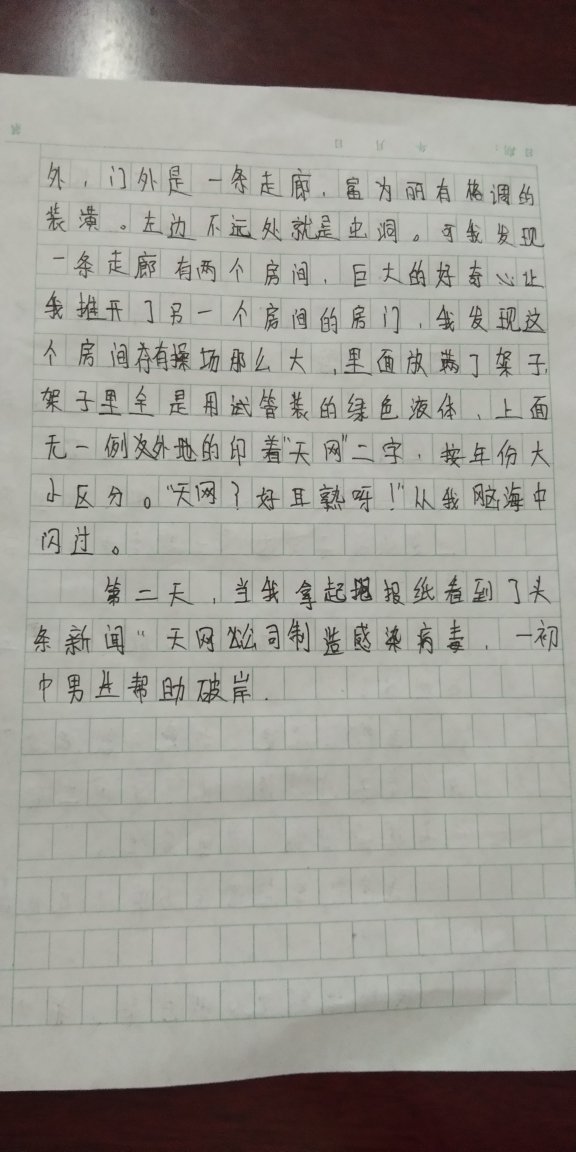 外，门外是一条走廊，富为丽有格调的
装潢。左边不远处就是虫洞。可我发现
一条走廊有两个房间，巨大的好奇心让
我推开了另一个房间的房门，我发现这
个房间存有操场那么大，里面放满了架子，
架子里全是用试管装的绿色液体，上面
无一例外地的印着“天网”二字，按年份大
小区分。“天网？好耳熟呀！”从我脑海中
闪过。
第二天，当我拿起报纸看到了头
条新闻“天网公司制造感染病毒，一初
中男生帮助破岸．
年 月 日